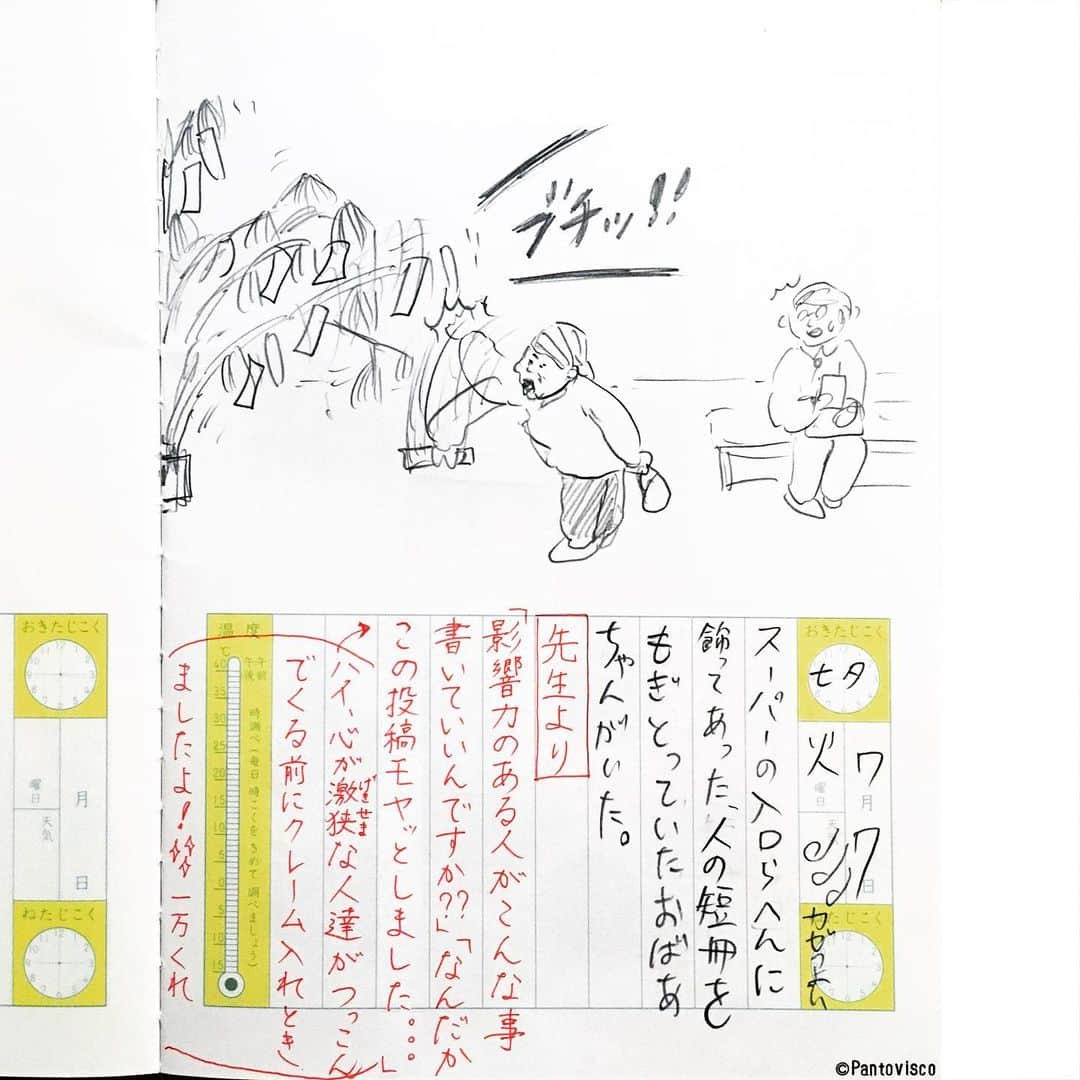 ブチッ!!
おきたじこく
七夕
7月7日
火曜日
天気
カゼつよい
ねたじこく
スーパーの入口らへんに
飾ってあった、人の短冊を
もぎとっていたおばあ
ちゃんがいた。
先生より
「影響力のある人がこんな事
書いていいんですか??」「なんだか
この投稿モヤッとしました。。。」
ハイ、心が激狭な人達がつっこん
げきせま
でくる前にクレーム入れとき
ましたよ! 一万くれ
温度
℃
午前
午後
時調べ(毎日時こくをきめて調べましょう)
40
35
30
25
20
15
10
5
0
5
10
15
おきたじこく
月
日
曜日
天気
ねたじこく
©Pantovisco